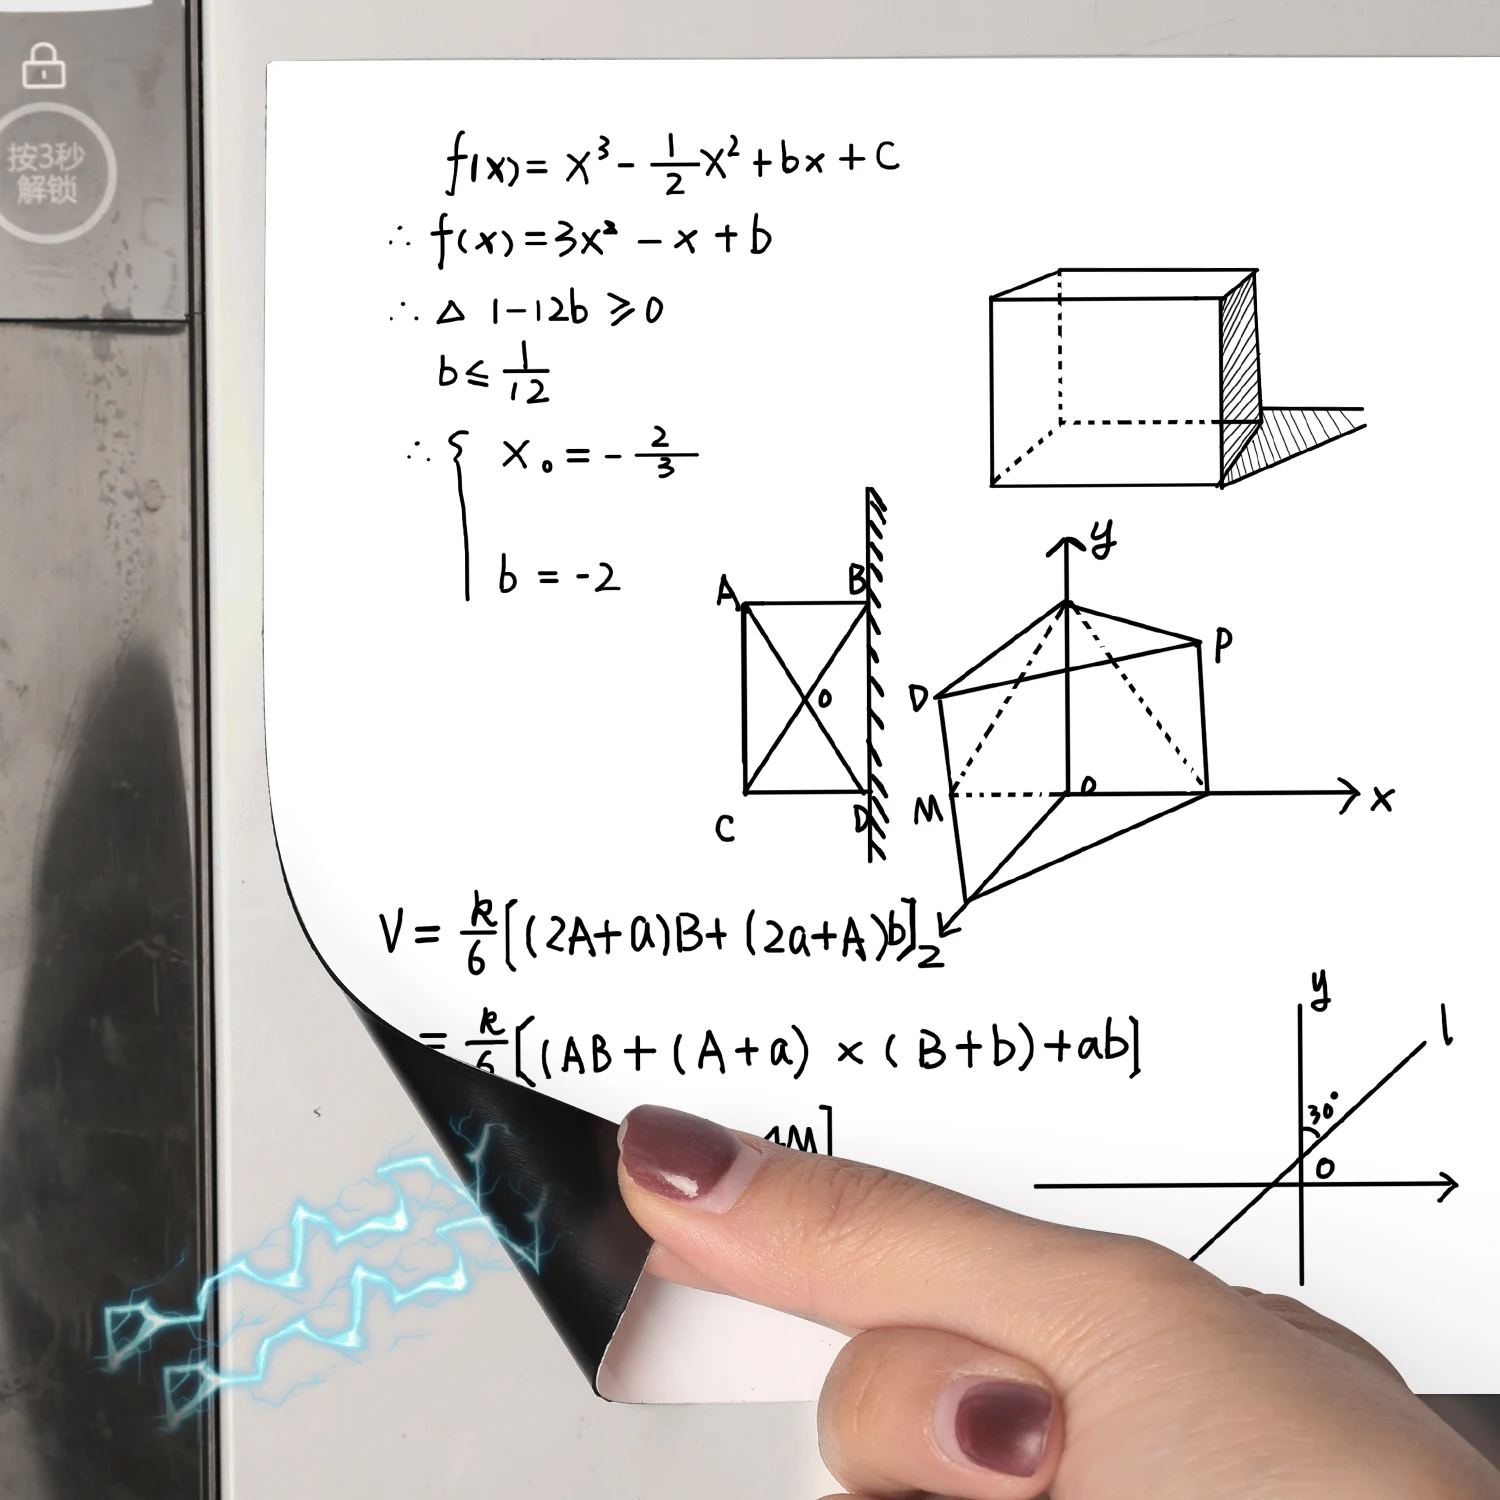 按3秒
解锁
f(x)= x³- 1/2 x²+bx+c
∴ f(x)=3x² - x + b
∴ △ 1-12b ≥ 0
b ≤ 1/12
∴ { x₀ = - 2/3
b = -2
A B
O
C D
y
P
D
M O x
2
V = k/6 [(2A+a)B+(2a+A)b]
= k/6 [(AB+(A+a) × (B+b)+ab]
M]
y
l
30°
O